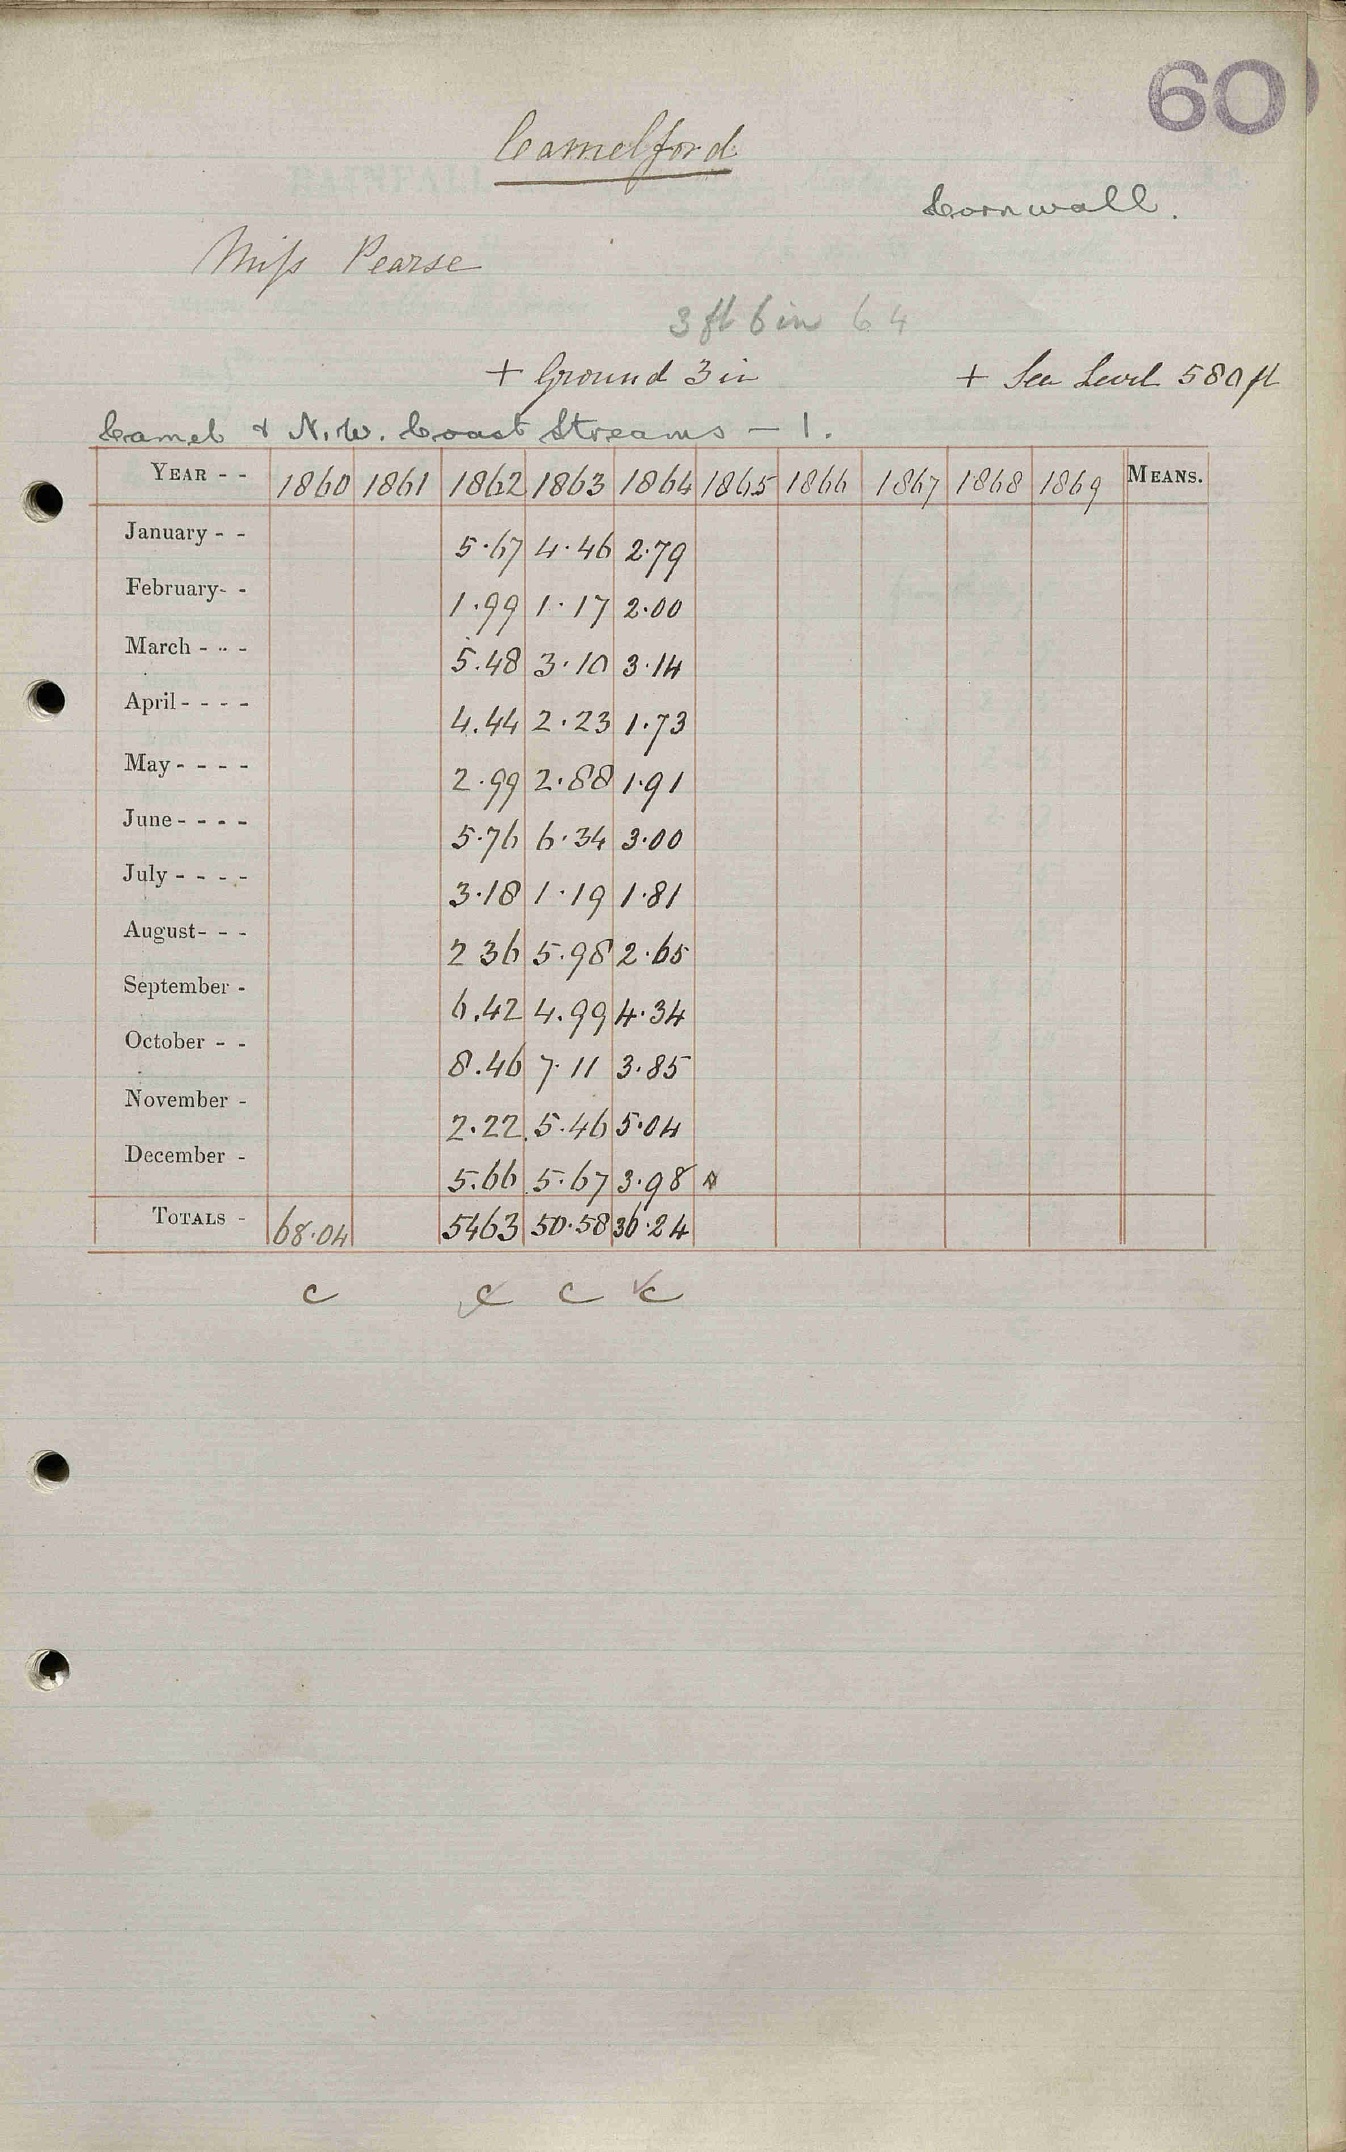 60
Camelford
Cornwall.
Miss Pearse
3 ft 6 in 64
+ Ground 3 in + Sea Level 580 ft
Camel & N.W. Coast Streams — 1.
YEAR - - 1860 1861 1862 1863 1864 1865 1866 1867 1868 1869 MEANS.
January - - 5.67 4.46 2.79
February- - 1.99 1.17 2.00
March - - - 5.48 3.10 3.14
April - - - - 4.44 2.23 1.73
May - - - - 2.99 2.88 1.91
June - - - - 5.76 6.34 3.00
July - - - - 3.18 1.19 1.81
August- - - 2 36 5.98 2.65
September - 6.42 4.99 4.34
October - - 8.46 7.11 3.85
November - 2.22 5.46 5.04
December - 5.66 5.67 3.98
TOTALS - 68.04 5463 50.58 36.24
c c c c